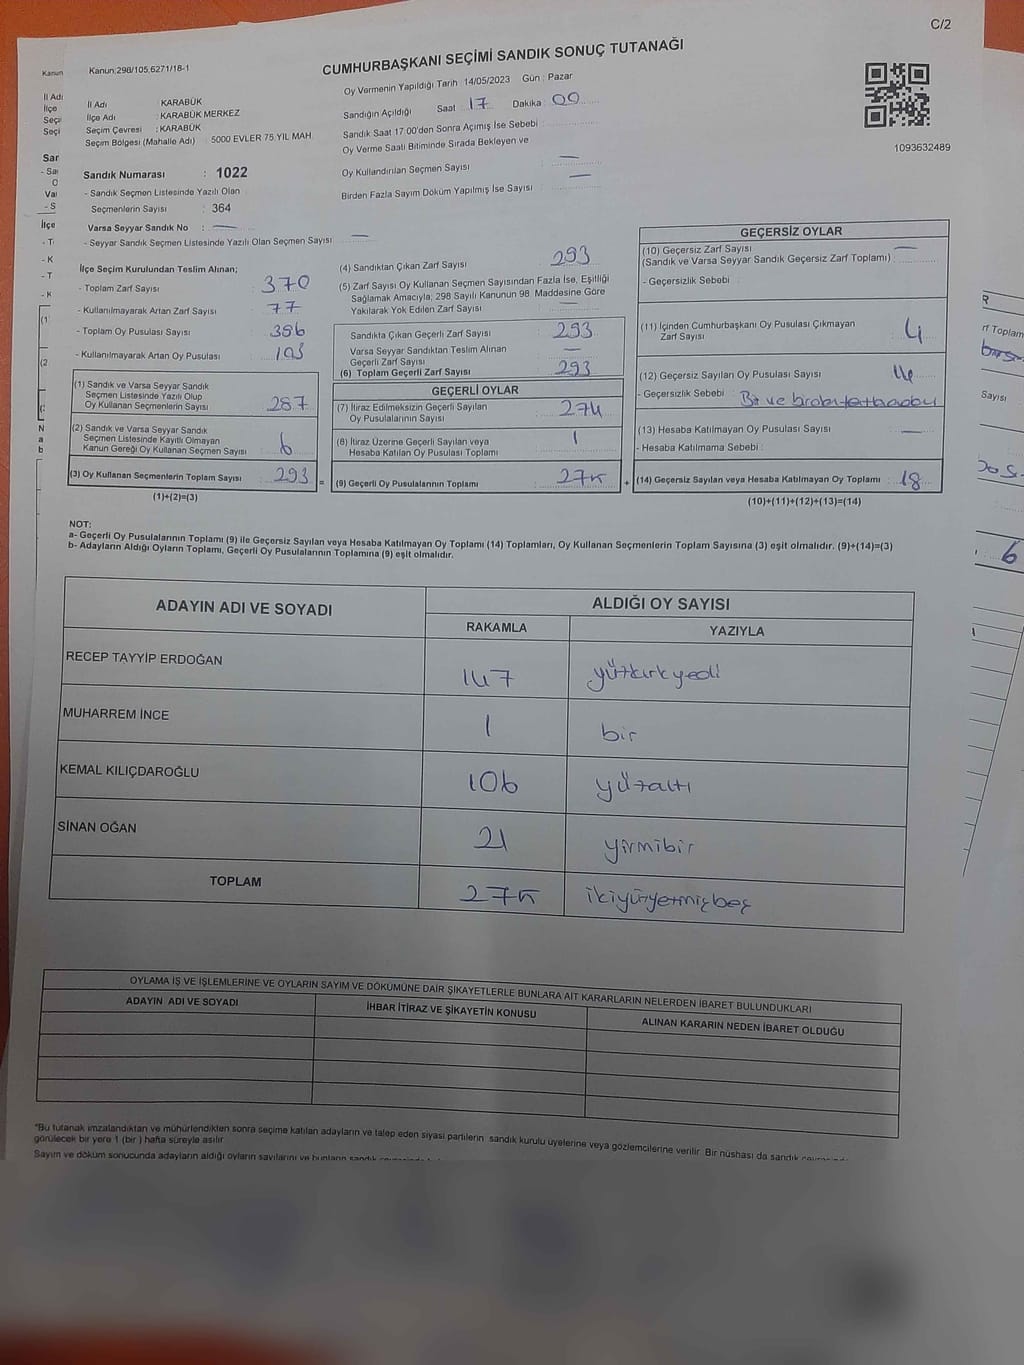 C/2
Kanun:298/105,6271/18-1
CUMHURBAŞKANI SEÇİMİ SANDIK SONUÇ TUTANAĞI
Oy Vermenin Yapıldığı Tarih : 14/05/2023 Gün : Pazar
İl Adı : KARABÜK
İlçe Adı : KARABÜK MERKEZ
Seçim Çevresi : KARABÜK
Seçim Bölgesi (Mahalle Adı) : 5000 EVLER 75.YIL MAH.
Sandığın Açıldığı Saat 17 Dakika 00
Sandık Saat 17:00'den Sonra Açımış İse Sebebi :
Oy Verme Saati Bitiminde Sırada Bekleyen ve
Oy Kullandırılan Seçmen Sayısı : —
Birden Fazla Sayım Döküm Yapılmış İse Sayısı : —
1093632489
Sandık Numarası : 1022
- Sandık Seçmen Listesinde Yazılı Olan
Seçmenlerin Sayısı : 364
Varsa Seyyar Sandık No : —
- Seyyar Sandık Seçmen Listesinde Yazılı Olan Seçmen Sayısı : —
İlçe Seçim Kurulundan Teslim Alınan;
- Toplam Zarf Sayısı : 370
- Kullanılmayarak Artan Zarf Sayısı : 77
- Toplam Oy Pusulası Sayısı :
- Kullanılmayarak Artan Oy Pusulası : 103
(1) Sandık ve Varsa Seyyar Sandık
Seçmen Listesinde Yazılı Olup
Oy Kullanan Seçmenlerin Sayısı : 287
(2) Sandık ve Varsa Seyyar Sandık
Seçmen Listesinde Kayıtlı Olmayan
Kanun Gereği Oy Kullanan Seçmen Sayısı : 6
(3) Oy Kullanan Seçmenlerin Toplam Sayısı : 293
(1)+(2)=(3)
(4) Sandıktan Çıkan Zarf Sayısı : 293
(5) Zarf Sayısı Oy Kullanan Seçmen Sayısından Fazla İse, Eşitliği
Sağlamak Amacıyla; 298 Sayılı Kanunun 98. Maddesine Göre
Yakılarak Yok Edilen Zarf Sayısı : —
Sandıkta Çıkan Geçerli Zarf Sayısı : 293
Varsa Seyyar Sandıktan Teslim Alınan
Geçerli Zarf Sayısı : —
(6) Toplam Geçerli Zarf Sayısı : 293
GEÇERLİ OYLAR
(7) İtiraz Edilmeksizin Geçerli Sayılan
Oy Pusulalarının Sayısı : 274
(8) İtiraz Üzerine Geçerli Sayılan veya
Hesaba Katılan Oy Pusulası Toplamı : 1
= (9) Geçerli Oy Pusulalarının Toplamı : 275
GEÇERSİZ OYLAR
(10) Geçersiz Zarf Sayısı : —
(Sandık ve Varsa Seyyar Sandık Geçersiz Zarf Toplamı)
- Geçersizlik Sebebi :
(11) İçinden Cumhurbaşkanı Oy Pusulası Çıkmayan
Zarf Sayısı : 4
(12) Geçersiz Sayılan Oy Pusulası Sayısı : 14
- Geçersizlik Sebebi :
(13) Hesaba Katılmayan Oy Pusulası Sayısı : —
- Hesaba Katılmama Sebebi :
+ (14) Geçersiz Sayılan veya Hesaba Katılmayan Oy Toplamı : 18
(10)+(11)+(12)+(13)=(14)
NOT:
a- Geçerli Oy Pusulalarının Toplamı (9) ile Geçersiz Sayılan veya Hesaba Katılmayan Oy Toplamı (14) Toplamları, Oy Kullanan Seçmenlerin Toplam Sayısına (3) eşit olmalıdır. (9)+(14)=(3)
b- Adayların Aldığı Oyların Toplamı, Geçerli Oy Pusulalarının Toplamına (9) eşit olmalıdır.
ADAYIN ADI VE SOYADI ALDIĞI OY SAYISI
RAKAMLA YAZIYLA
RECEP TAYYİP ERDOĞAN 147 yüzkırkyedi
MUHARREM İNCE 1 bir
KEMAL KILIÇDAROĞLU 106 yüzaltı
SİNAN OĞAN 21 yirmibir
TOPLAM 275 ikiyüzyetmişbeş
OYLAMA İŞ VE İŞLEMLERİNE VE OYLARIN SAYIM VE DÖKÜMÜNE DAİR ŞİKAYETLERLE BUNLARA AİT KARARLARIN NELERDEN İBARET BULUNDUKLARI
ADAYIN ADI VE SOYADI İHBAR İTİRAZ VE ŞİKAYETİN KONUSU ALINAN KARARIN NEDEN İBARET OLDUĞU
*Bu tutanak imzalandıktan ve mühürlendikten sonra seçime katılan adayların ve talep eden siyasi partilerin sandık kurulu üyelerine veya gözlemcilerine verilir. Bir nüshası da sandık
görülecek bir yere 1 (bir ) hafta süreyle asılır.
Sayım ve döküm sonucunda adayların aldığı oyların sayılarını ve bunların sandık